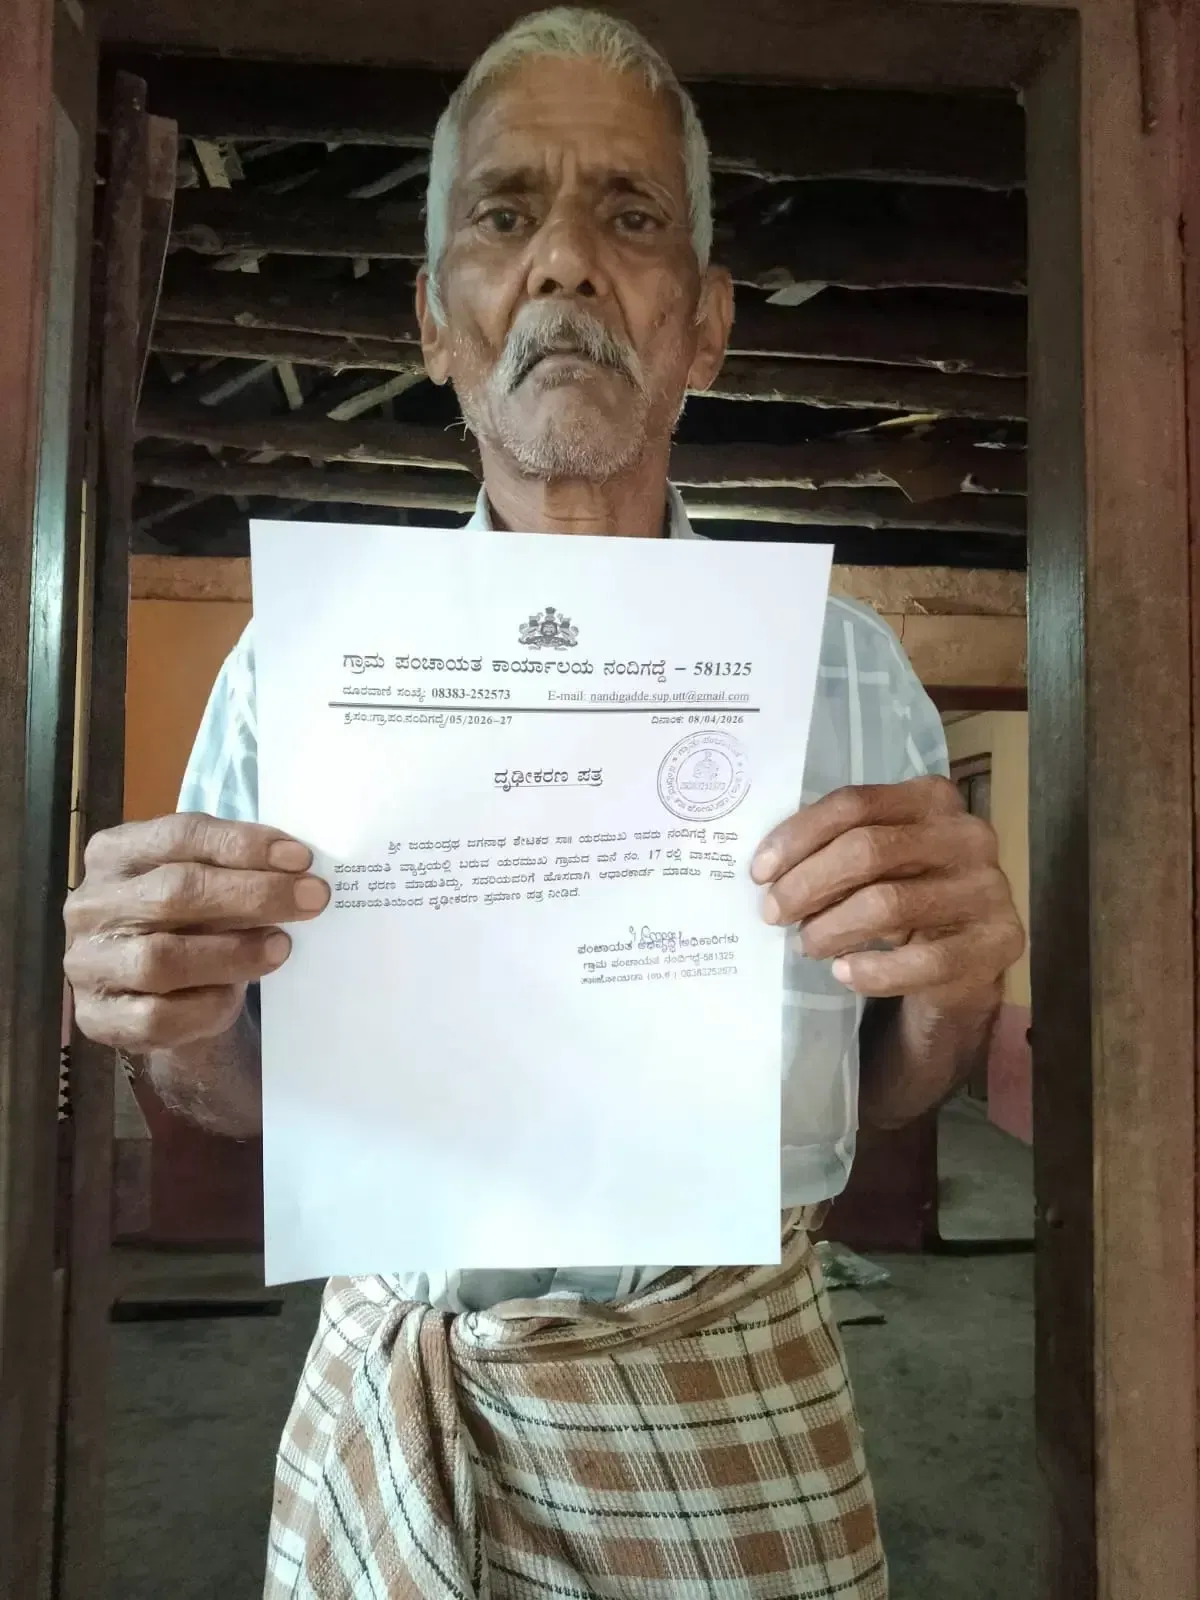 ಗ್ರಾಮ ಪಂಚಾಯತ ಕಾರ್ಯಾಲಯ ನಂದಿಗದ್ದೆ – 581325
ದೂರವಾಣಿ ಸಂಖ್ಯೆ: 08383-252573 E-mail: nandigadde.sup.utt@gmail.com
ಕ್ರ.ಸಂ.:ಗ್ರಾ.ಪಂ.ನಂದಿಗದ್ದೆ/05/2026-27 ದಿನಾಂಕ: 08/04/2026
ದೃಢೀಕರಣ ಪತ್ರ
ಶ್ರೀ ಜಯಂದ್ರಥ ಜಗನಾಥ ಶೇಟಕರ ಸಾಃ ಯರಮುಖ ಇವರು ನಂದಿಗದ್ದೆ ಗ್ರಾಮ
ಪಂಚಾಯತಿ ವ್ಯಾಪ್ತಿಯಲ್ಲಿ ಬರುವ ಯರಮುಖ ಗ್ರಾಮದ ಮನೆ ನಂ. 17 ರಲ್ಲಿ ವಾಸವಿದ್ದು,
ತೆರಿಗೆ ಭರಣ ಮಾಡುತಿದ್ದು, ಸದರಿಯವರಿಗೆ ಹೊಸದಾಗಿ ಆಧಾರಕಾರ್ಡ ಮಾಡಲು ಗ್ರಾಮ
ಪಂಚಾಯತಿಯಿಂದ ದೃಢೀಕರಣ ಪ್ರಮಾಣ ಪತ್ರ ನೀಡಿದೆ.
ಪಂಚಾಯತ ಅಭಿವೃದ್ಧಿ ಅಧಿಕಾರಿಗಳು
ಗ್ರಾಮ ಪಂಚಾಯತ ನಂದಿಗದ್ದೆ-581325
08383252573